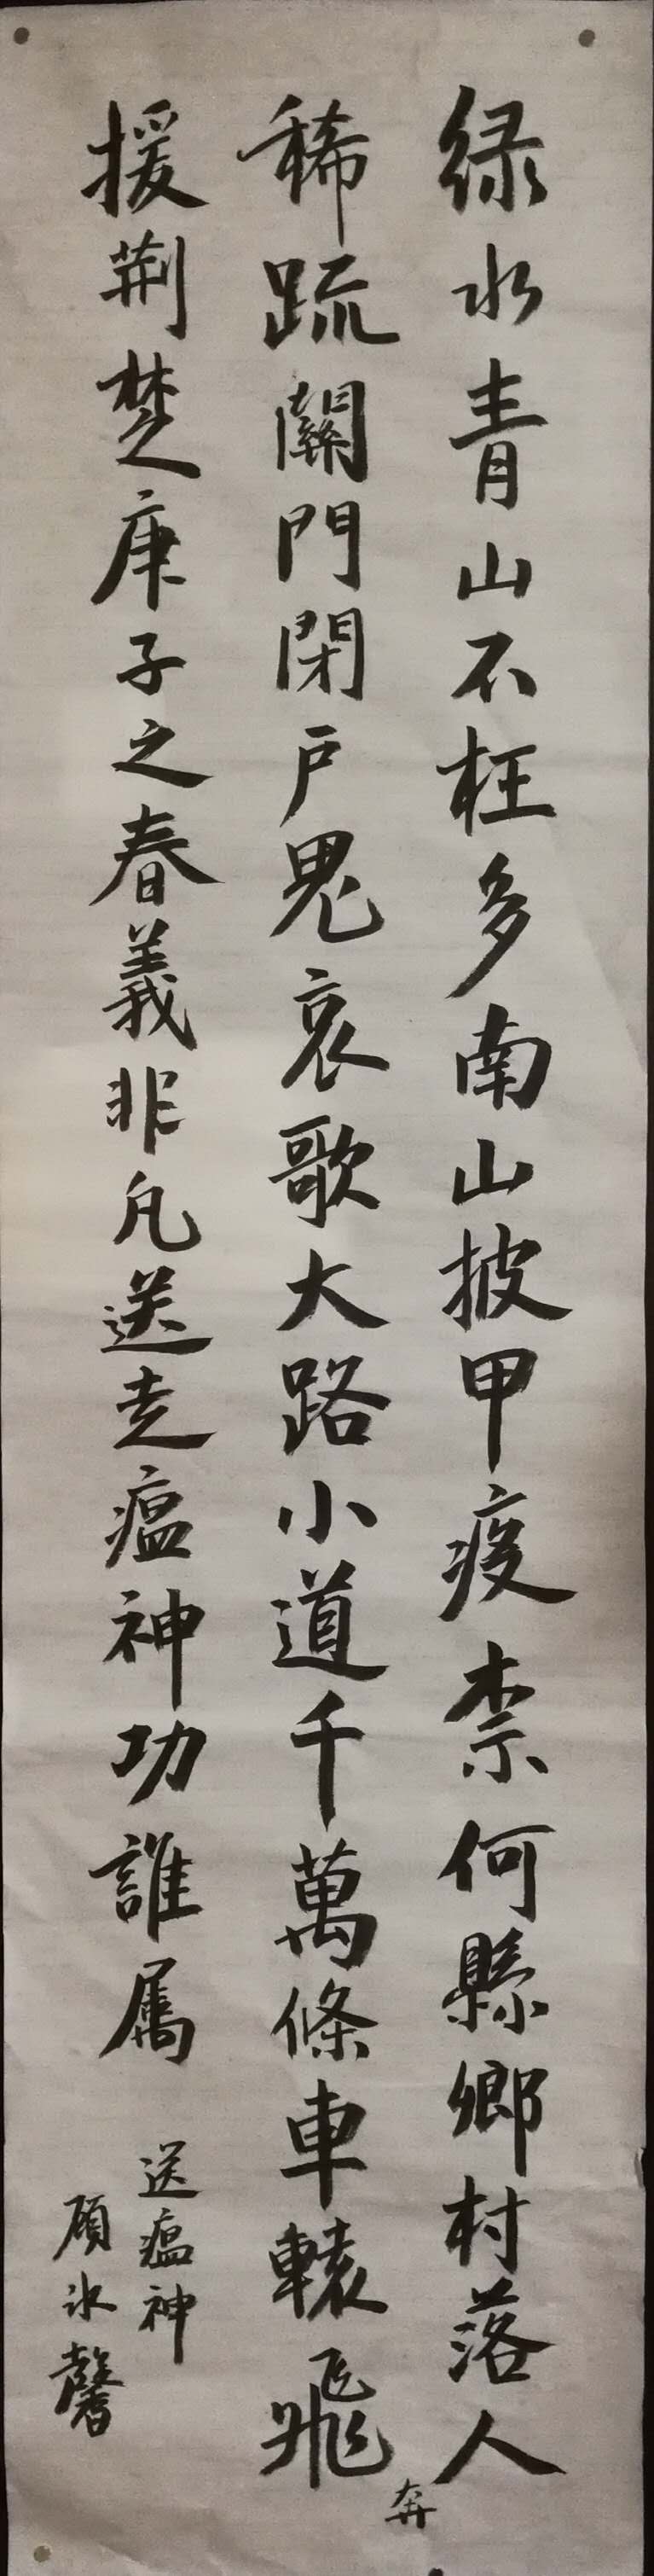 绿水青山不枉多南山披甲疫禁何縣鄉村落人
稀疏關門閉户鬼哀歌大路小道千萬條車轅飛
奔
援荆楚庚子之春義非凡送走瘟神功誰属
送瘟神
顾冰馨